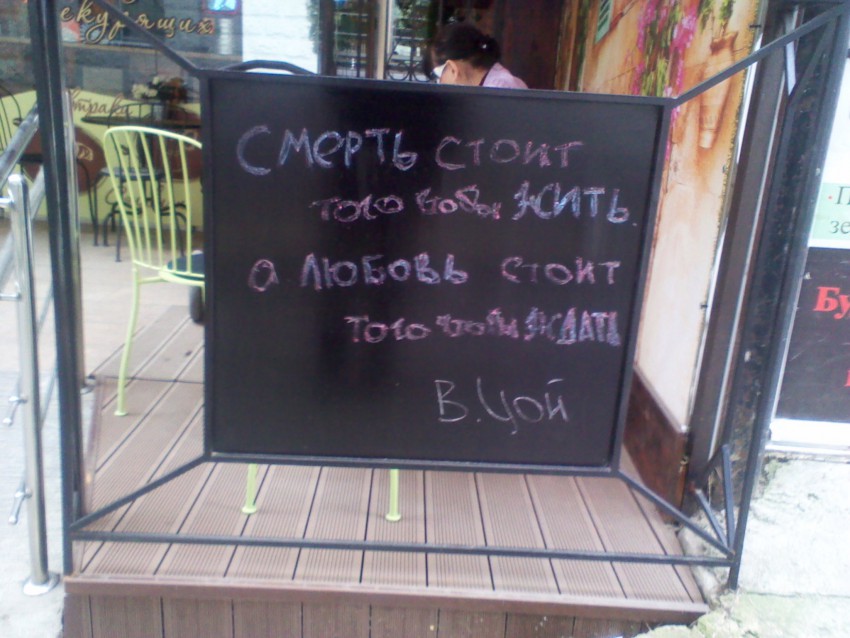 екурящих
втрака
Смерть стоит
того чтобы жить.
а любовь стоит
того чтобы ждать
В. Цой
П
зе
Бу